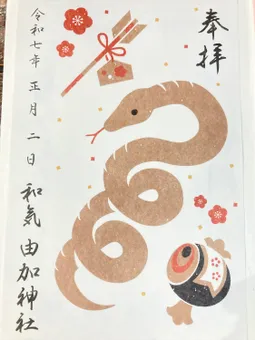 奉拝
令和七年 正月 二日
和氣 由加神社